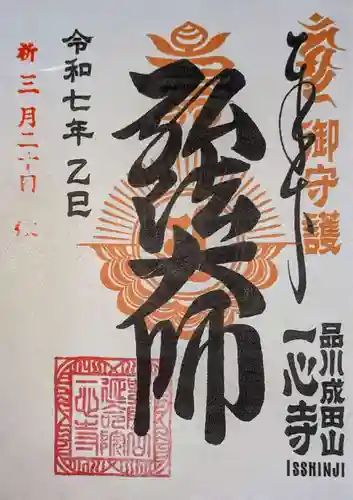 奉拝
御守護
品川成田山
一心寺
ISSHINJI
弘法大師
令和七年 乙巳
三月二十日
一心寺